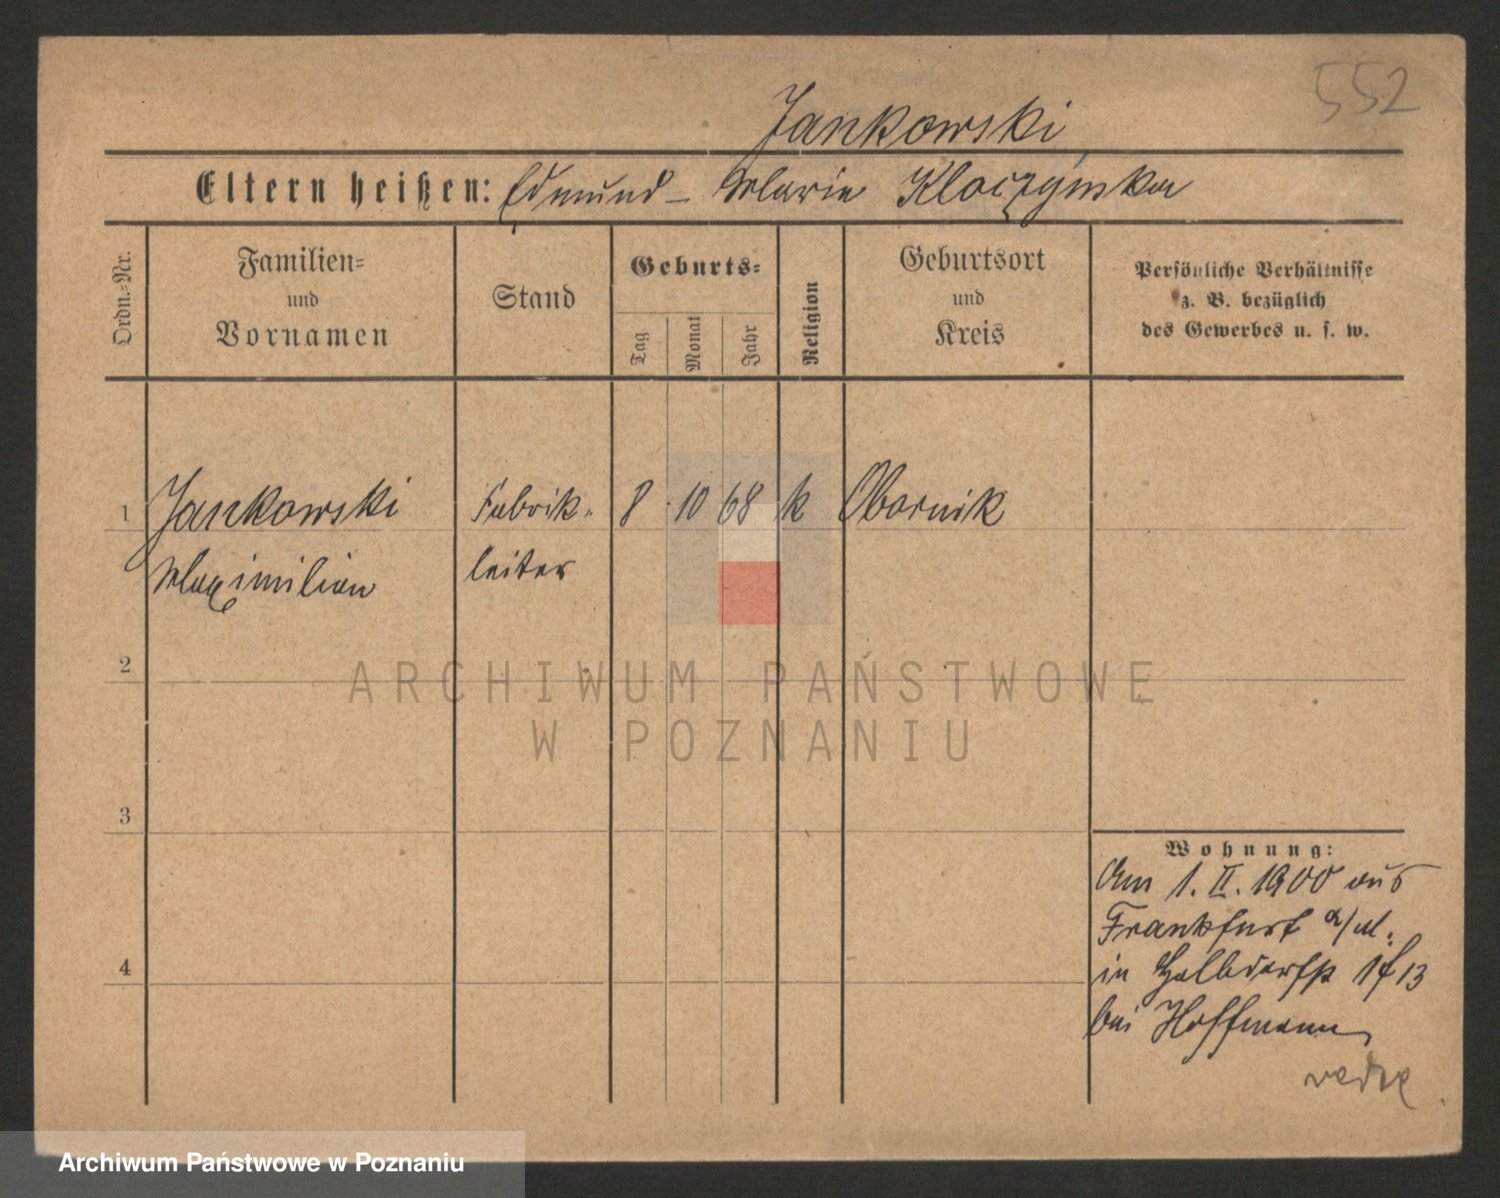 552
Jankowski
Eltern heißen: Edmund - Marie Kloczynska
Ordn.-Nr.
Familien-
und
Vornamen
Stand
Geburts-
Tag
Monat
Jahr
Religion
Geburtsort
und
Kreis
Persönliche Verhältnisse
z. B. bezüglich
des Gewerbes u. s. w.
1 Jankowski Fabrik- 8 . 10 68 k Obornik
Maximilian leiter
2
ARCHIWUM PAŃSTWOWE
W POZNANIU
3
Wohnung:
Am 1. II. 1900 aus
Frankfurt a/M.
4
in Halbdorfstr 13
bei Hoffmann
Archiwum Państwowe w Poznaniu